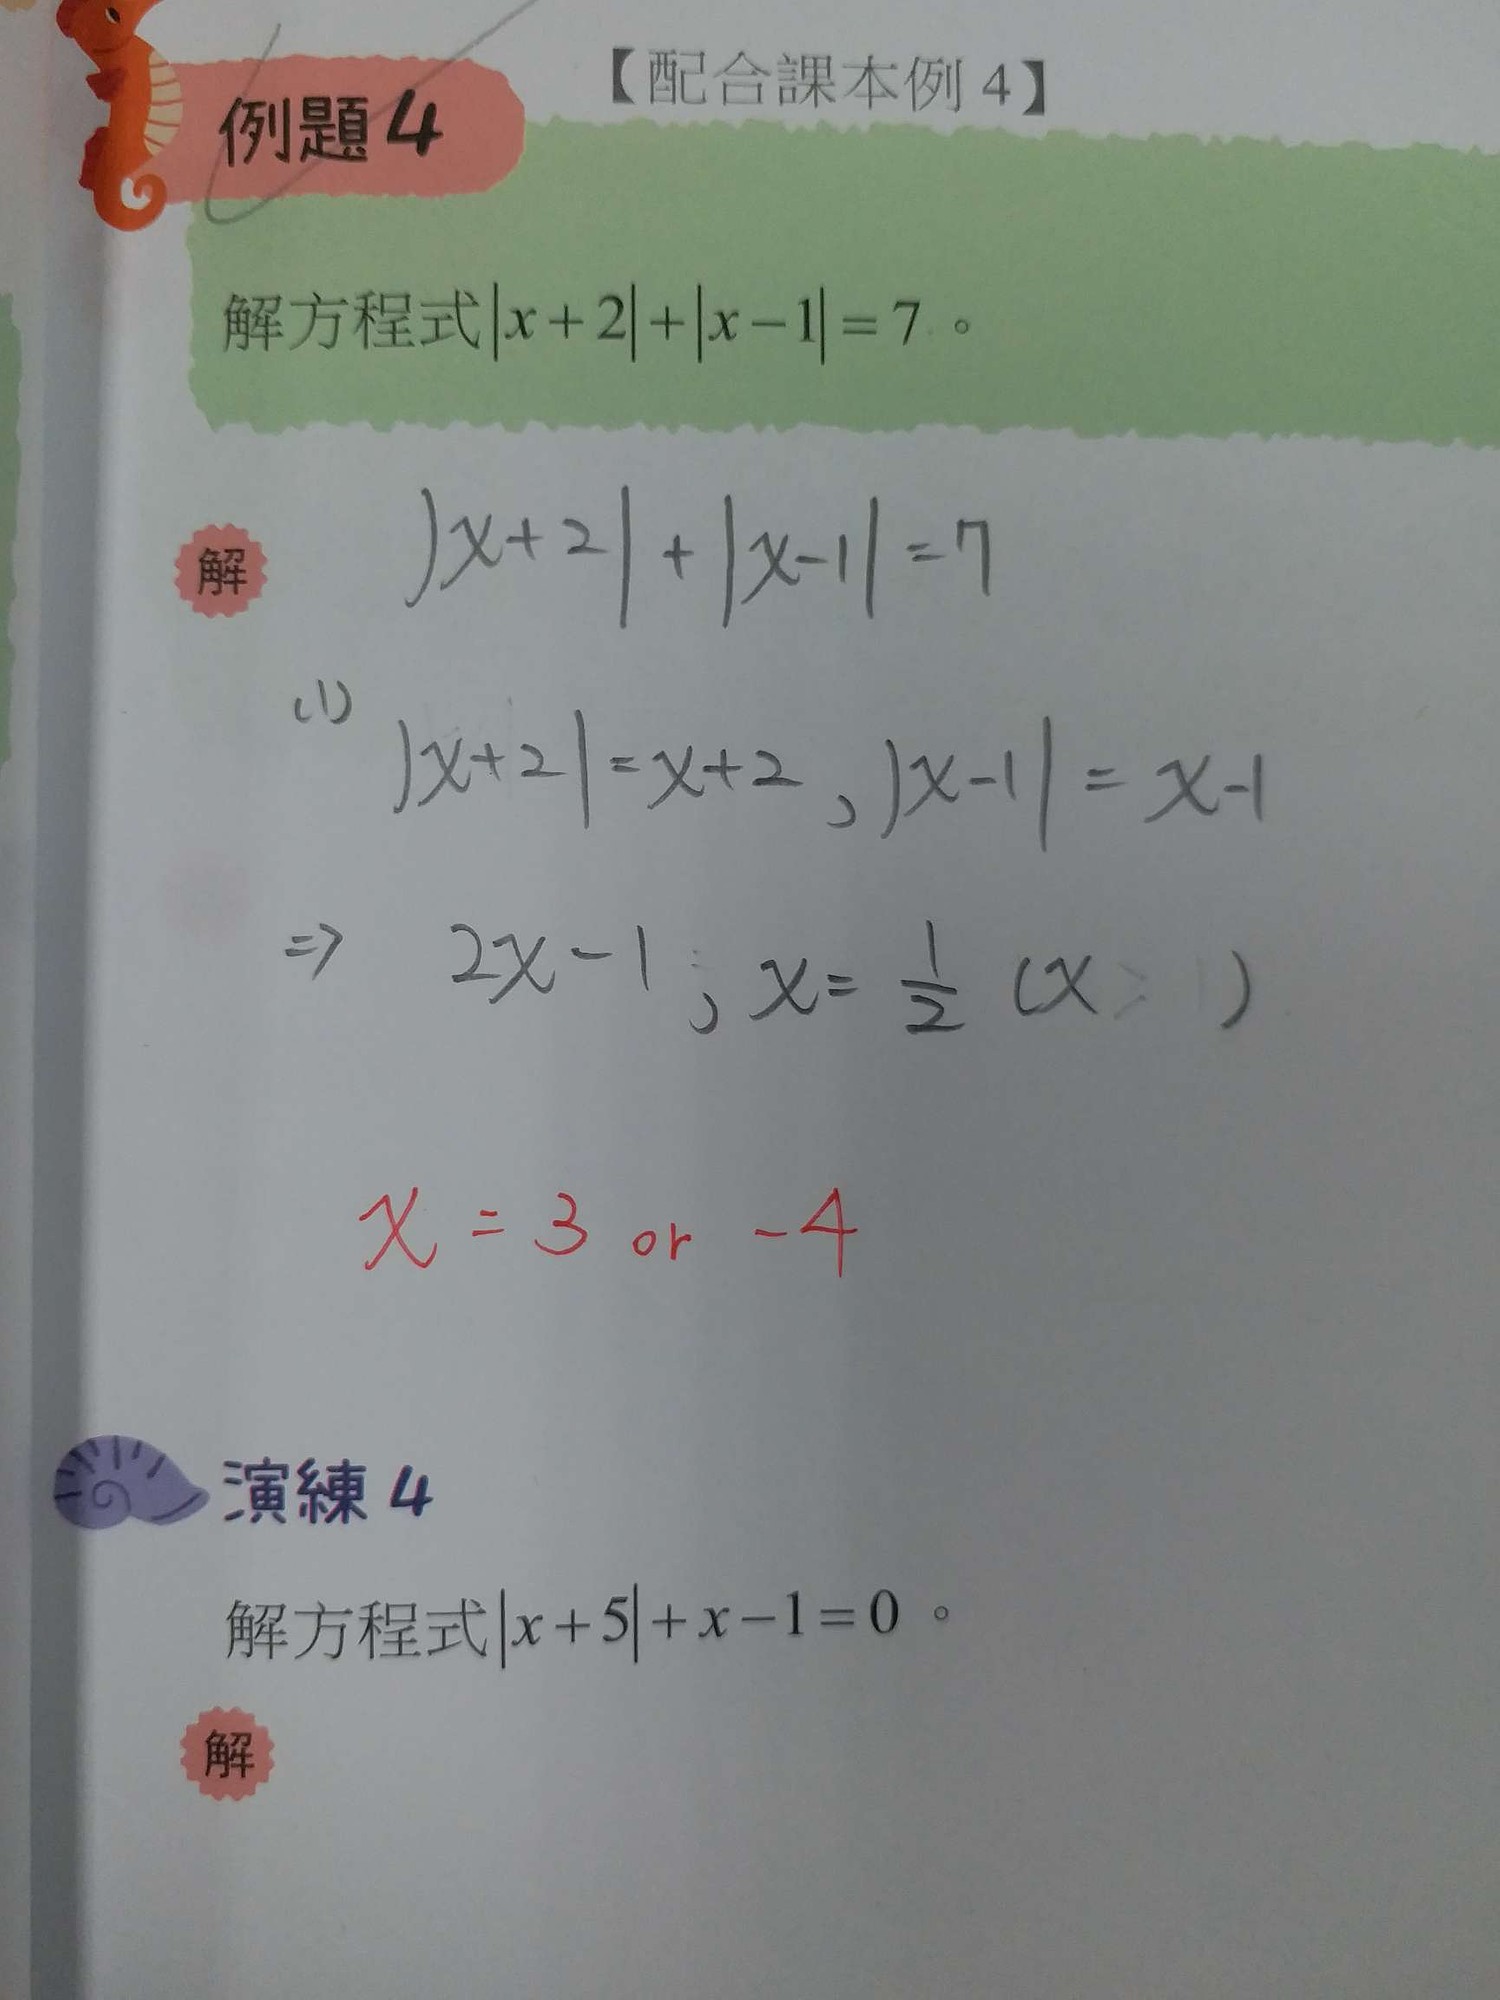 【配合課本例 4】
例題4
解方程式|x+2|+|x−1|=7。
解
|x+2|+|x-1|=7
(1)
|x+2|=x+2,|x-1|=x-1
⇒ 2x-1;x=1/2 (x≥1)
x=3 or -4
演練 4
解方程式|x+5|+x−1=0。
解